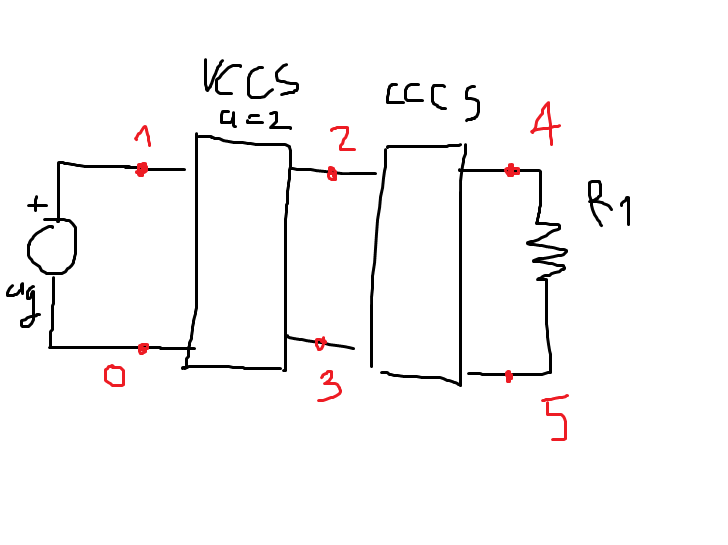 VCCS
a=2
CCCS
1
2
4
+
ug
R1
0
3
5